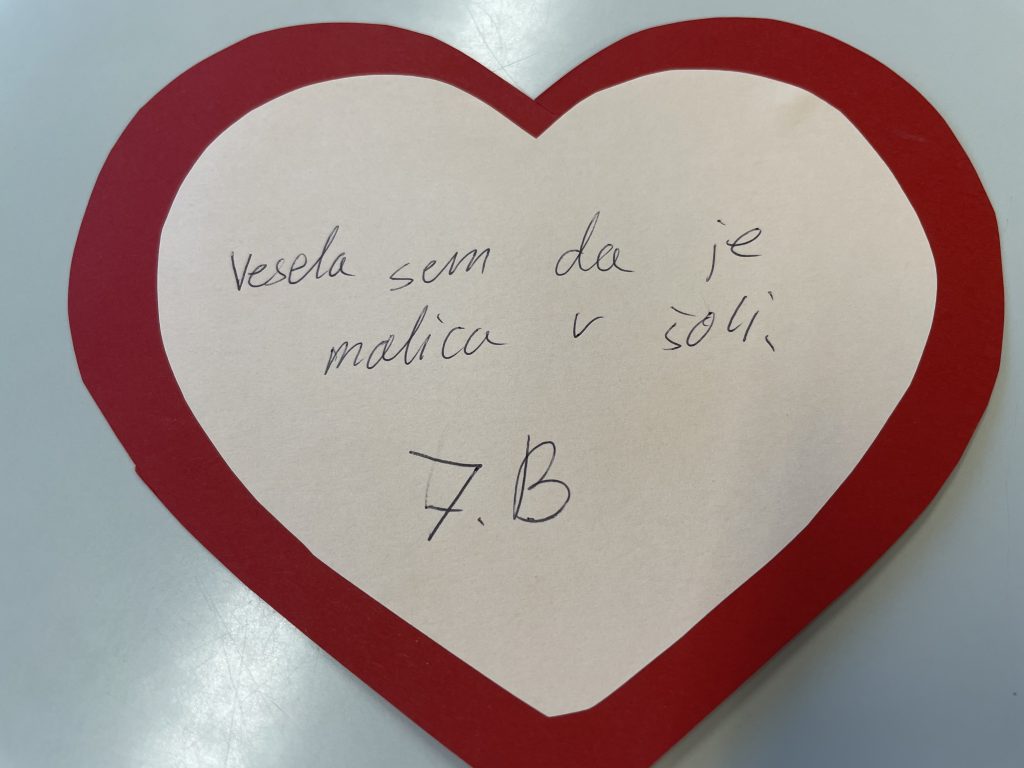 Vesela sem da je
malica v šoli.
7. B